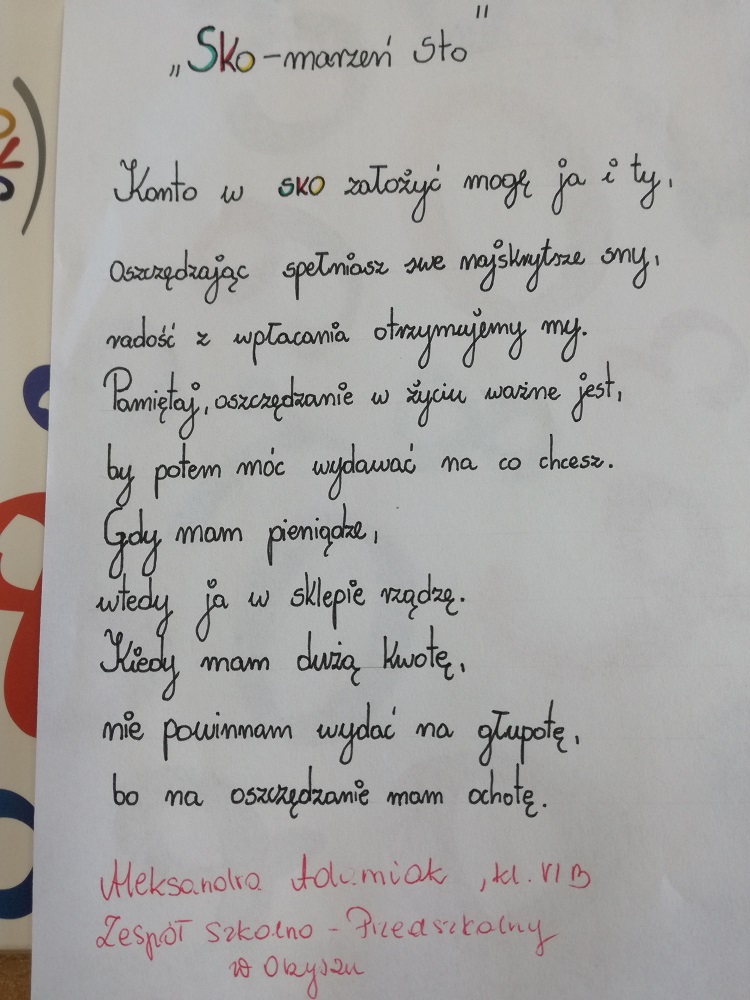 „Sko-marzeń sto"
Konto w SKO założyć mogę ja i ty,
oszczędzając spełniasz swe najskrytsze sny,
radość z wpłacania otrzymujemy my.
Pamiętaj, oszczędzanie w życiu ważne jest,
by potem móc wydawać na co chcesz.
Gdy mam pieniądze,
wtedy ja w sklepie rządzę.
Kiedy mam dużą kwotę,
nie powinnam wydać na głupotę,
bo na oszczędzanie mam ochotę.
Aleksandra Adamiak, kl. VI B
Zespół Szkolno-Przedszkolny
w